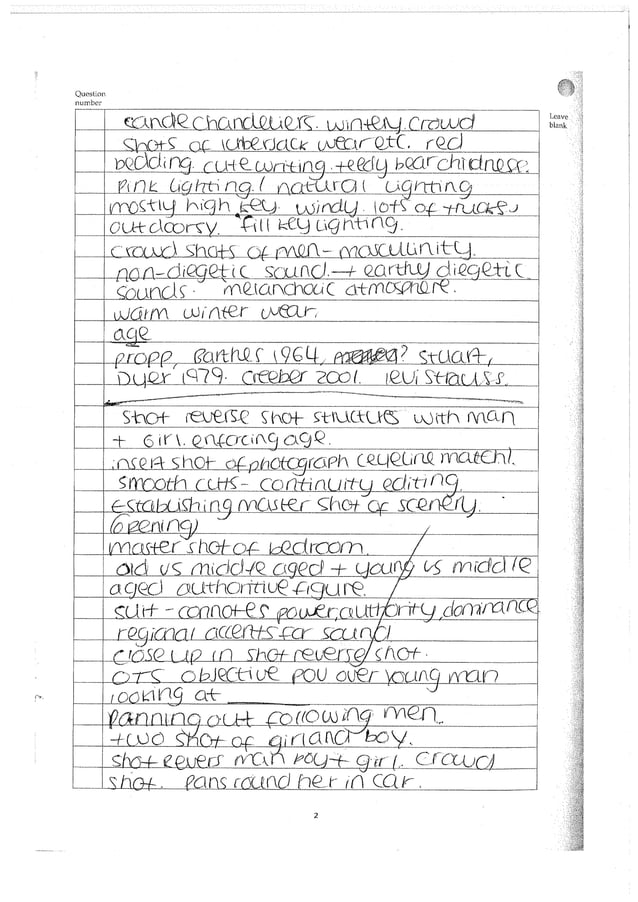 Question
number
Leave
blank
candle chandeliers. wintery. crowd
shots of luberjack wear etc. red
bedding. cute writing. teedy bear childness.
Pink lighting / natural lighting
mostly high key. windy. lots of trucks
outdoorsy. fill key lighting.
crowd shots of men - masculinity.
non-diegetic sound. → earthy diegetic
sounds. melancholic atmosphere.
warm winter wear.
age
propp, Barthes 1964, ? Stuart,
Dyer 1979. Creeber 2001. levi strauss.
shot reverse shot structures with man
+ girl. enforcing age.
insert shot of photograph (eyeline match).
smooth cuts - continuity editing.
Establishing master shot of scenery.
(opening)
master shot of bedroom.
old vs middle aged + young vs middle
aged authoritive figure.
suit - connotes power, authority, dominance
regional accents for sound
close up in shot reverse shot.
OTS objective pov over young man
looking at
panning out following men.
+ two shot of girl and boy.
shot revers man boy + girl. crowd
shot. pans round her in car.
2